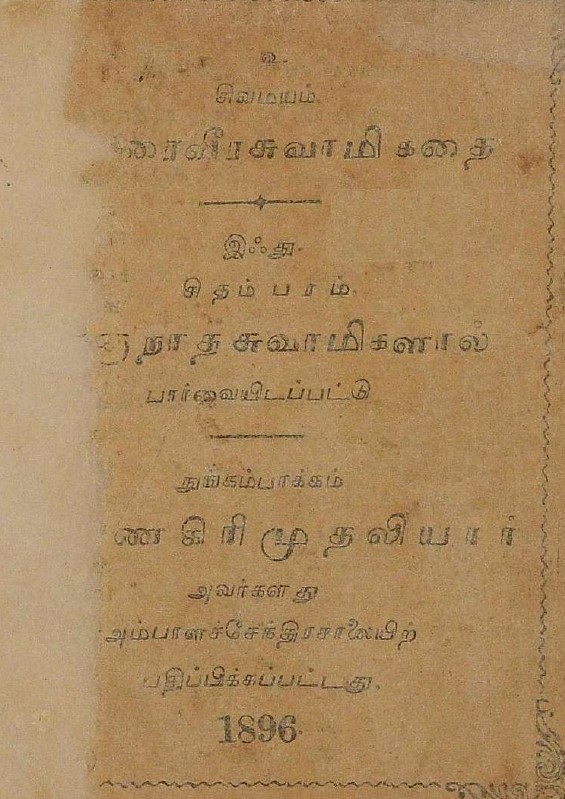 உ.
சிவமயம்.
ரைவீரசுவாமி கதை
இஃது.
சிதம்பரம்.
நாதசுவாமிகளால்
பார்வையிடப்பட்டு
நுங்கம்பாக்கம்
ணகிரிமுதலியார்
அவர்களது
அம்பாளச்சேந்திரசாலையிற்
பதிப்பிக்கப்பட்டது.
1896